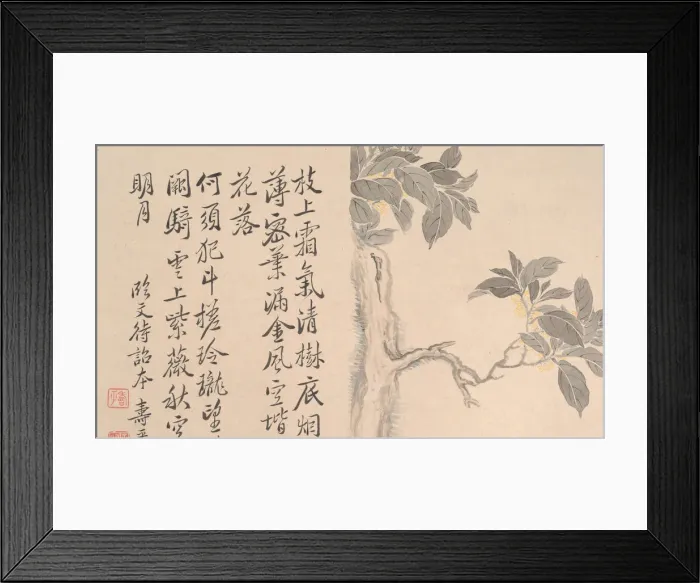 枝上霜氣清樹底烟
薄密葉漏金風空堦
花落
何須犯斗槎玲瓏望
闕騎雲上紫薇秋空
明月
臨文待詔本 壽